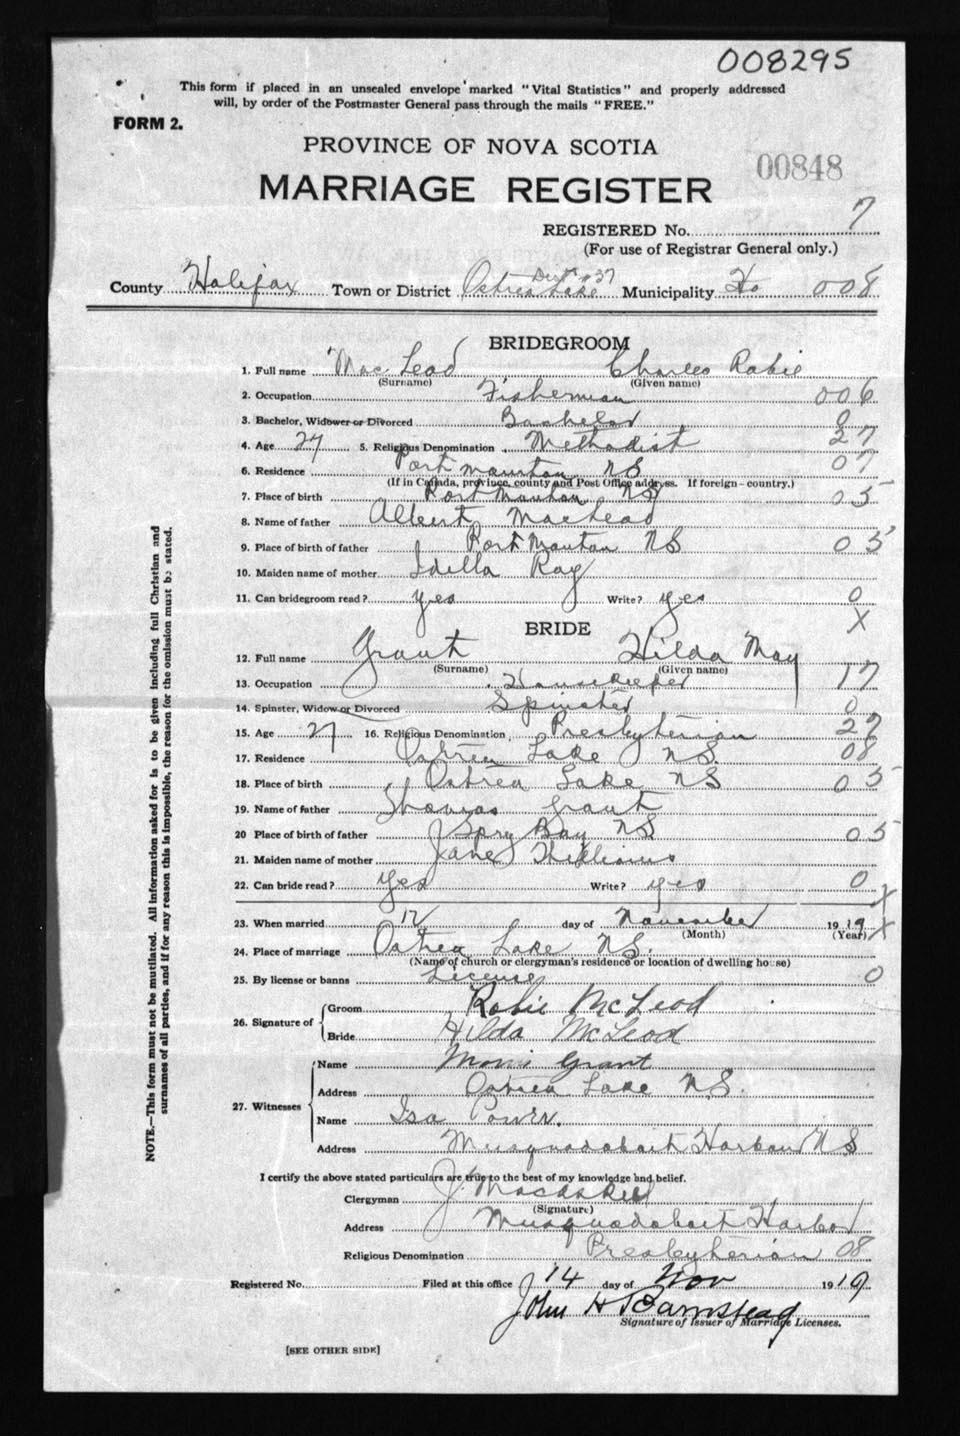 008295
This form if placed in an unsealed envelope marked "Vital Statistics" and properly addressed
will, by order of the Postmaster General pass through the mails "FREE."
FORM 2.
PROVINCE OF NOVA SCOTIA
00848
MARRIAGE REGISTER
REGISTERED No. 7
(For use of Registrar General only.)
County Halifax Town or District Ostrea Lake Dist 37 Municipality Hx 008
BRIDEGROOM
1. Full name MacLeod Charles Robie
(Surname) (Given name)
2. Occupation Fisherman 006
3. Bachelor, Widower or Divorced Bachelor 0
4. Age 27 5. Religious Denomination Methodist 27
6. Residence Port Mouton NS 07
(If in Canada, province, county and Post Office address. If foreign-country.)
7. Place of birth Port Mouton NS 05
8. Name of father Albert MacLeod
9. Place of birth of father Port Mouton NS 05
10. Maiden name of mother Idella Roy
11. Can bridegroom read? yes Write? yes 0
X
BRIDE
12. Full name Grant Hilda May
(Surname) (Given name)
13. Occupation Housekeeper 17
14. Spinster, Widow or Divorced Spinster 0
15. Age 27 16. Religious Denomination Presbyterian 27
17. Residence Ostrea Lake NS. 08
18. Place of birth Ostrea Lake NS 05
19. Name of father Thomas Grant
20 Place of birth of father Spry Bay NS 05
21. Maiden name of mother Jane
22. Can bride read? yes Write? yes 0
X
23. When married 12 day of November 1919 X
(Month) (Year)
24. Place of marriage Ostrea Lake N.S.
(Name of church or clergyman's residence or location of dwelling house)
25. By license or banns License 0
26. Signature of Groom Robie McLeod
Bride Hilda McLeod
27. Witnesses Name Morris Grant
Address Ostrea Lake N.S.
Name Isa Power.
Address Musquodoboit Harbour NS
I certify the above stated particulars are true to the best of my knowledge and belief.
Clergyman J Macaskill
(Signature)
Address Musquodoboit Harbor
Religious Denomination Presbyterian 08
Registered No. Filed at this office 14 day of Nov 1919
John H Bamstead
Signature of Issuer of Marriage Licenses.
[SEE OTHER SIDE]
NOTE.—This form must not be mutilated. All information asked for is to be given including full Christian and
surnames of all parties, and if for any reason this is impossible, the reason for the omission must be stated.